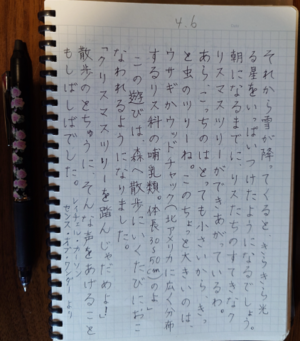 46
それから雪が降ってくると、きらきら光
る星をいっぱいつけたようになるでしょう。
朝になるまでに、リスたちのすてきなク
リスマスツリーができあがっているわ。
あら、こっちのはとっても小さいから、きっ
と虫のツリーね。このちょっと大きいのは、
ウサギかウッドチャック(北アメリカに広く分布
するリス科の哺乳類。体長30-50cm)のよ」
この遊びは、森へ散歩にいくたびにおこ
なわれるようになりました。
「クリスマスツリーを踏んじゃだめよ!」
散歩のとちゅうに、そんな声をあげること
もしばしばでした。
レイチェル・カーソン
センス・オブ・ワンダーより